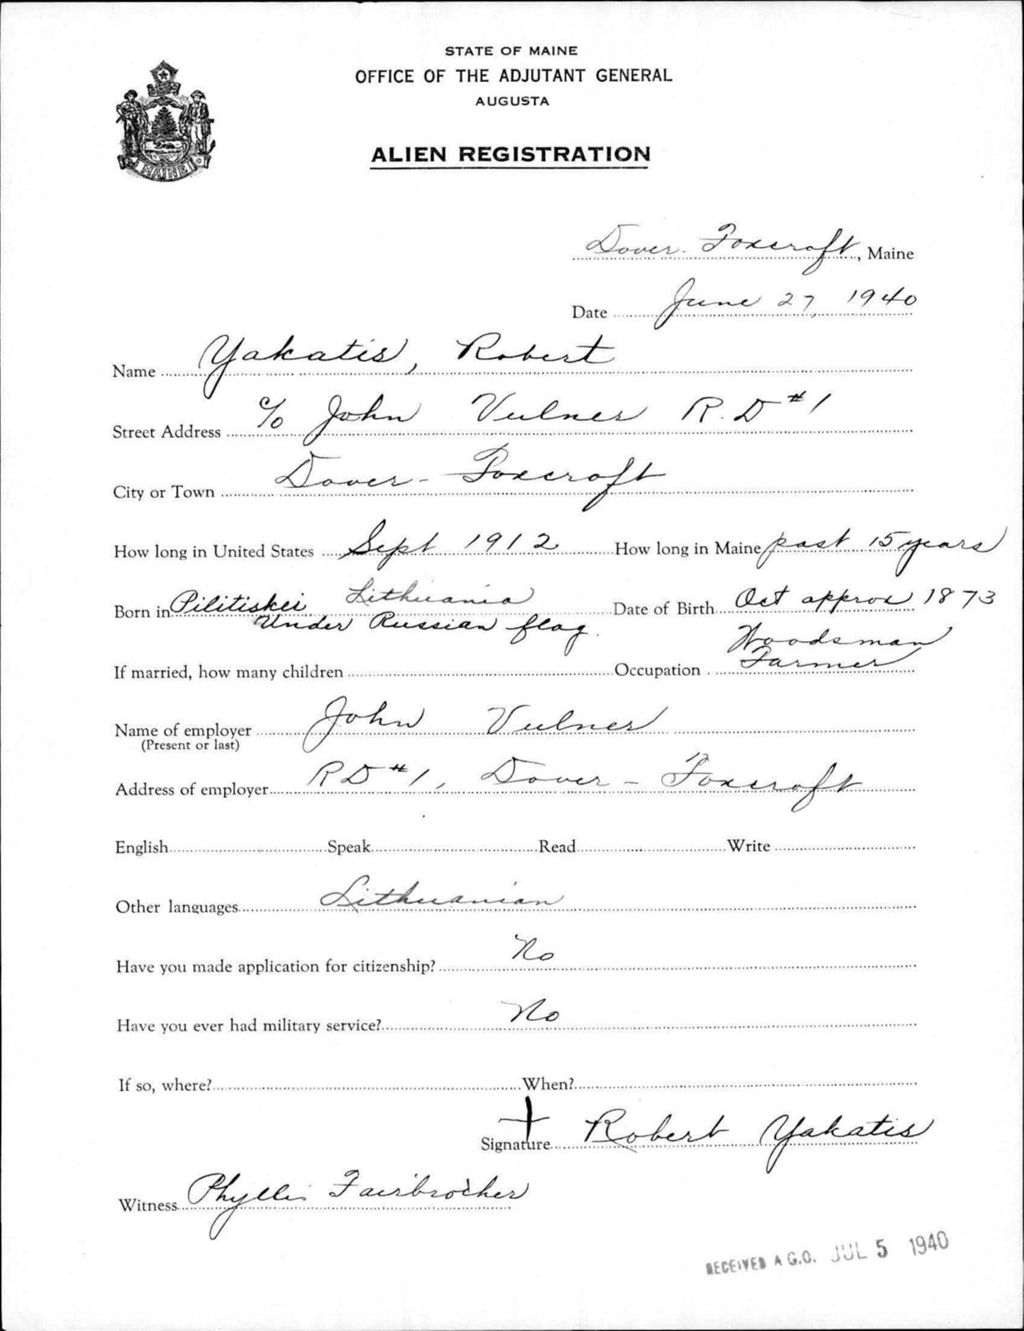 STATE OF MAINE
OFFICE OF THE ADJUTANT GENERAL
AUGUSTA
ALIEN REGISTRATION
MAINE
Dover-Foxcroft, Maine
Date June 27, 1940
Name Yakatis, Robert
Street Address c/o John Vulner R.D #1
City or Town Dover-Foxcroft
How long in United States Sept 1912 How long in Maine past 15 years
Born in Pilitiskei Lithuania Date of Birth Oct approx 1873
Under Russian flag. Woodsman
If married, how many children Occupation Farmer
Name of employer John Vulner
(Present or last)
Address of employer RD #1, Dover-Foxcroft
English Speak Read Write
Other languages Lithuanian
Have you made application for citizenship? No
Have you ever had military service? No
If so, where? When?
Signature + Robert Yakatis
Witness Phyllis Fairbrother
RECEIVED A.G.O. JUL 5 1940